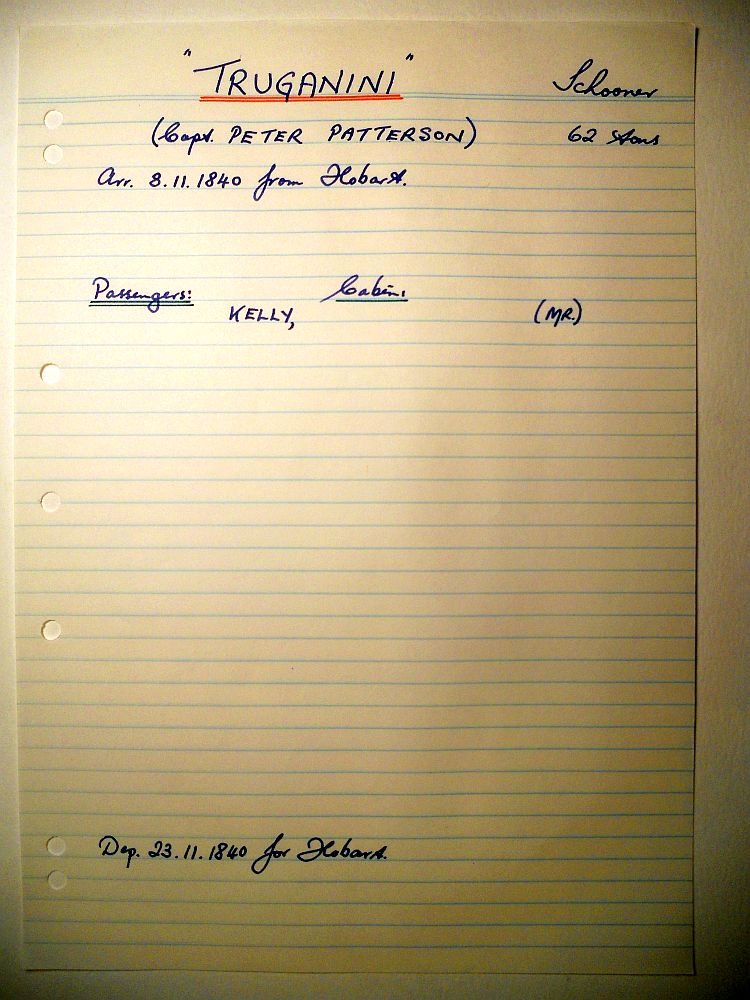 "TRUGANINI" Schooner
(Capt. PETER PATTERSON) 62 tons
Arr. 8.11.1840 from Hobart.
Passengers: Cabin:
KELLY, (MR.)
Dep. 23.11.1840 for Hobart.